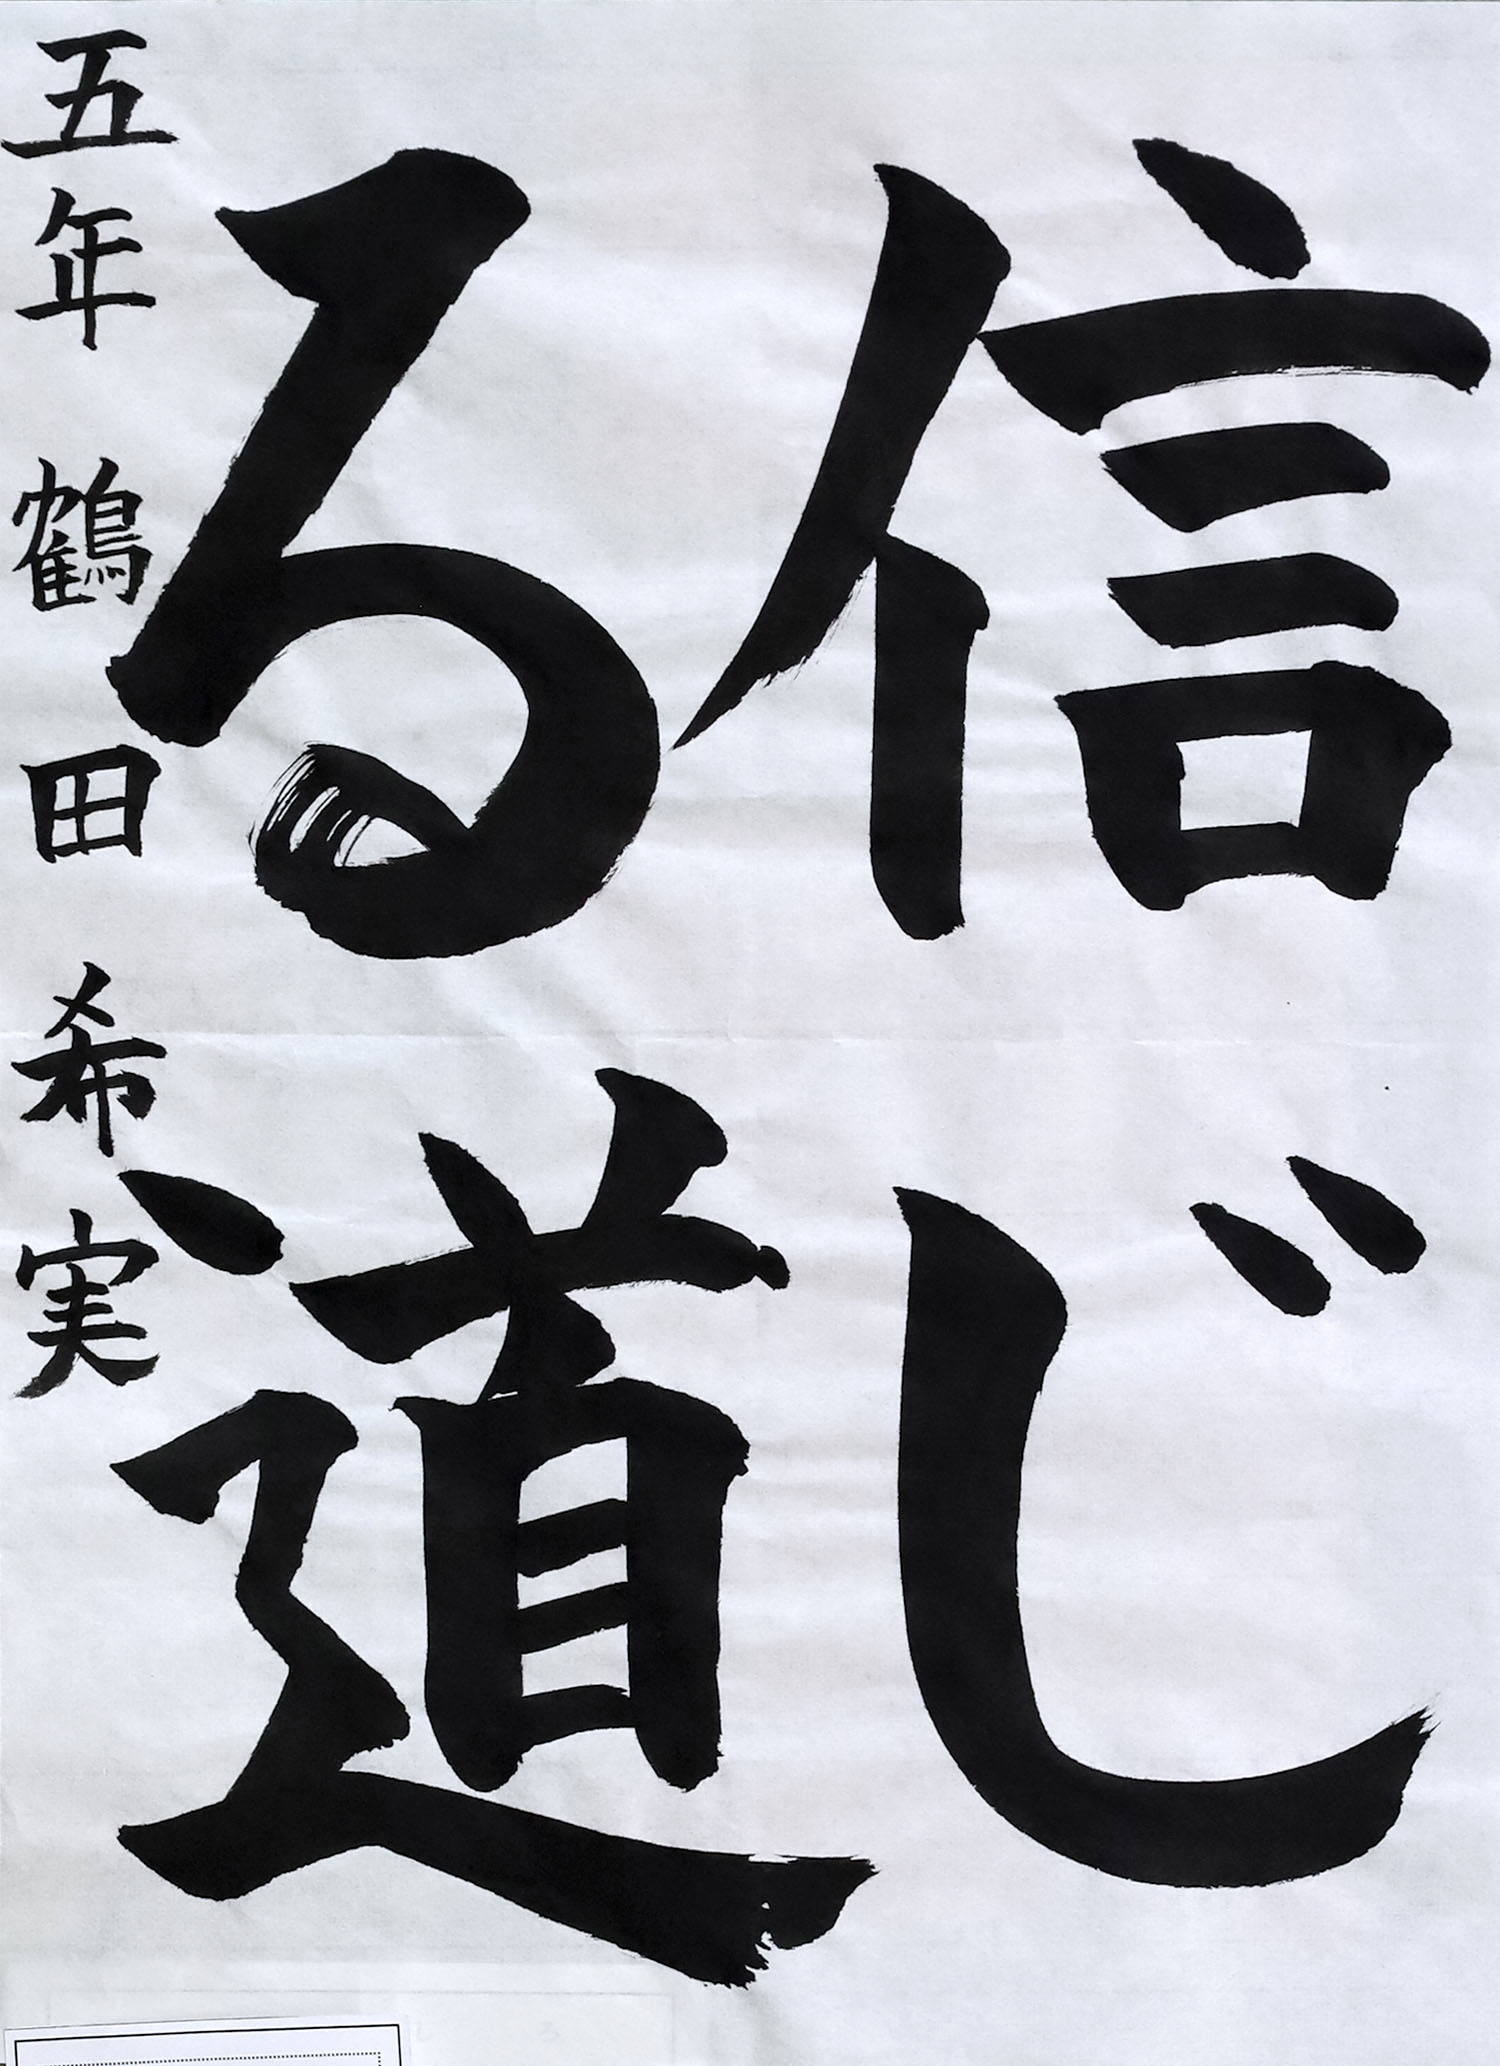 信じ
る道
五年 鶴田 希実